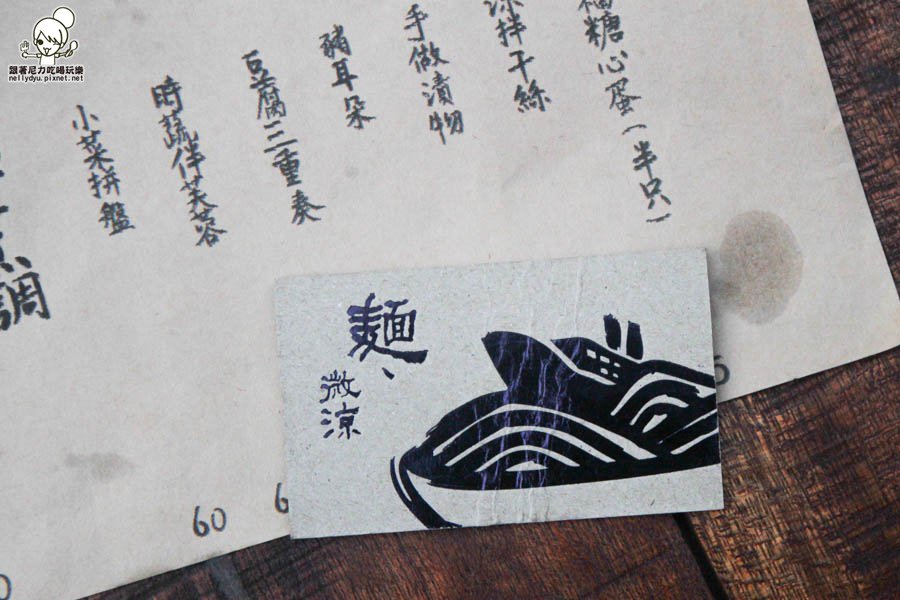 跟著尼力吃喝玩樂
nellydyu.pixnet.net
糖心蛋(半只)
拌干絲
手做漬物
豬耳朵
豆腐三重奏
時蔬伴芙蓉
小菜拼盤
調
60
6
麵、
微涼